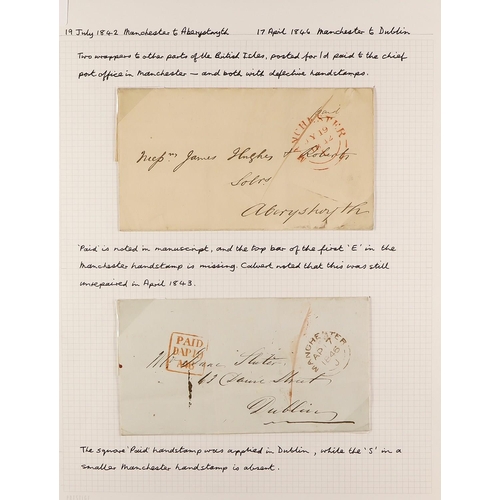 19 July 1842 Manchester to Aberystwyth 17 April 1846 Manchester to Dublin
Two wrappers to other parts of the British Isles, posted for 1d paid to the chief
post office in Manchester — and both with defective handstamps.
Paid
MANCHESTER
JY 19
Messrs James Hughes & Roberts
Solrs
Aberystwyth
'Paid' is noted in manuscript, and the top bar of the first 'E' in the
Manchester handstamp is missing. Culvert noted that this was still
unrepaired in April 1843.
PAID
MANCHESTER
AP 17
1846
J
Slater
Street
Dublin
The square 'Paid' handstamp was applied in Dublin, while the 'S' in a
smaller Manchester handstamp is absent.